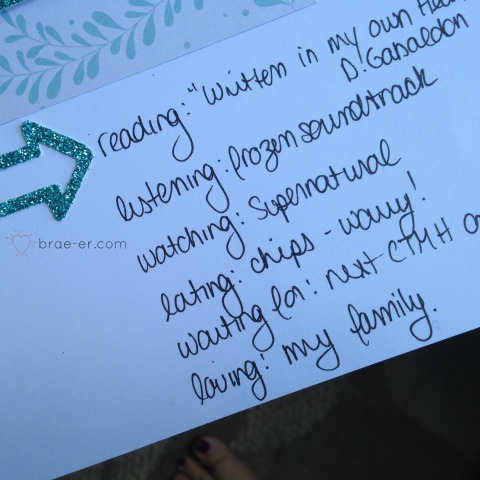 reading: "Written in my own Hear
D. Gabaldon
listening: frozen soundtrack
watching: Supernatural
eating: chips - wavy!
waiting for: next CTMH
loving: my family.
brae-er.com